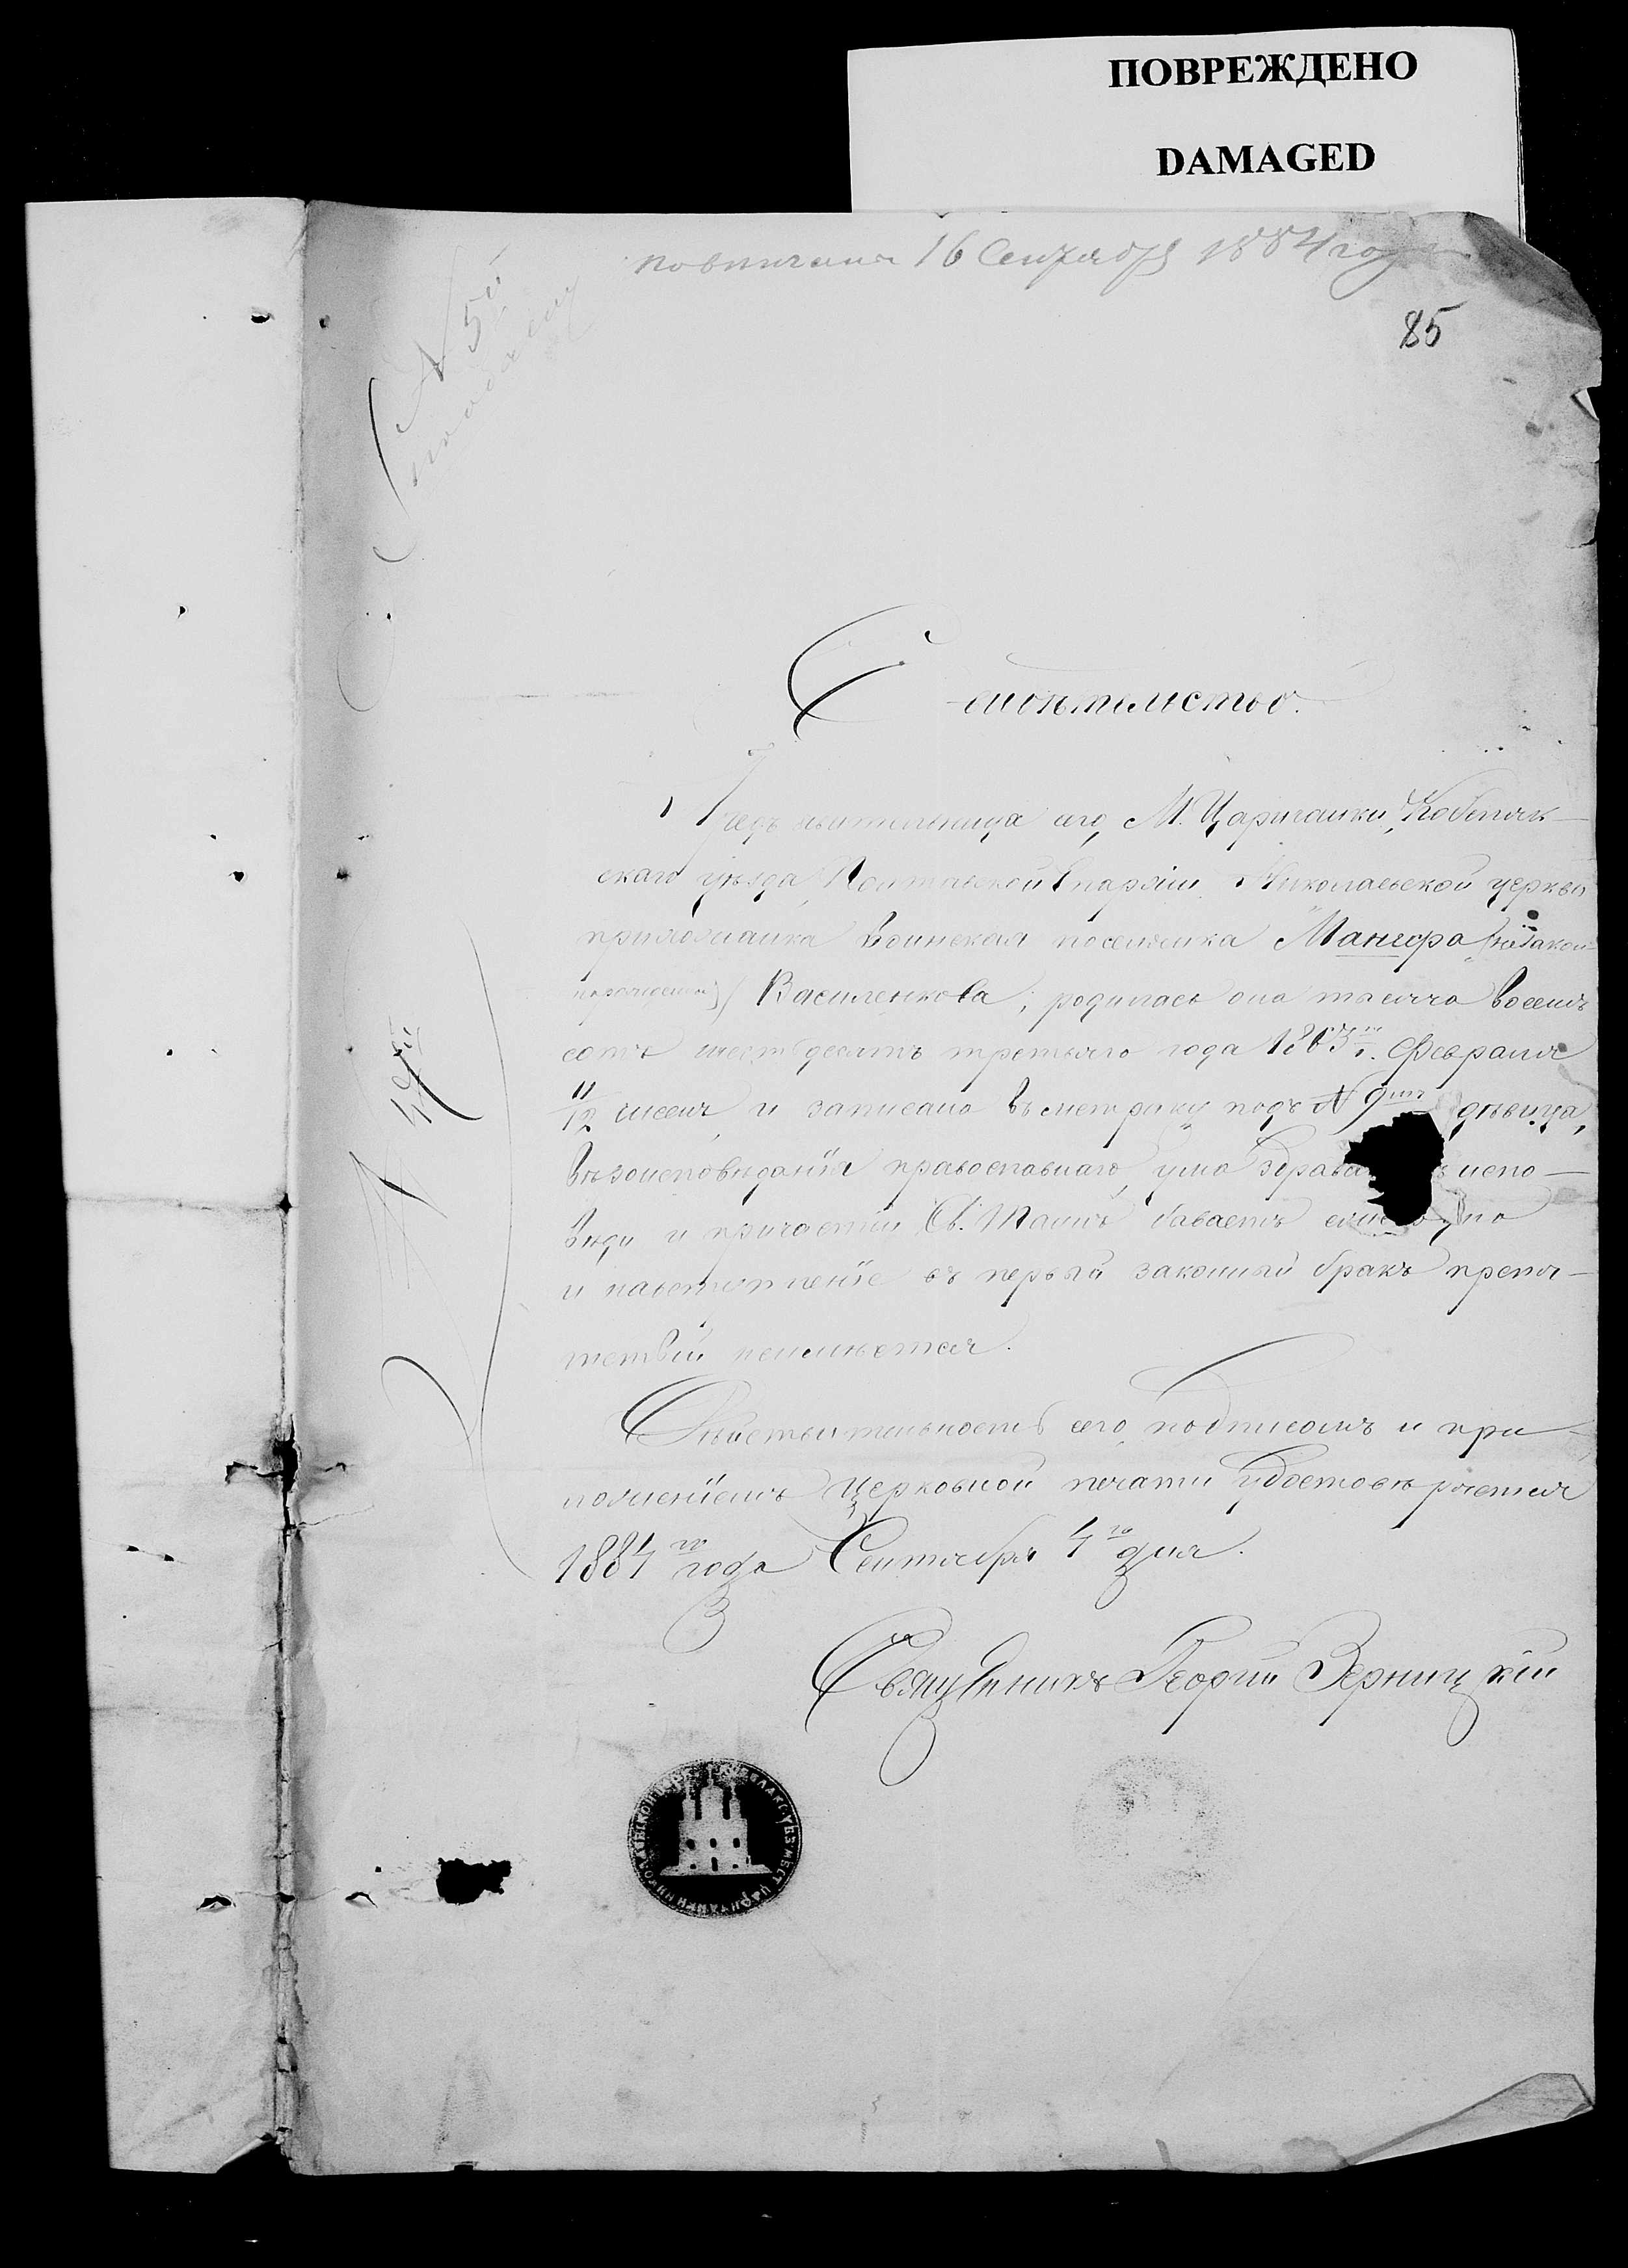 ПОВРЕЖДЕНО
DAMAGED
повенчана 16 Сентября 1884 года
85
№ 5й
Свидѣтельство.
Предъявительница сего, М. Царичанки, Кобеляк-
скаго уѣзда, Полтавской Епархіи Николаевской церкви
прихожанка воинская поселянка Мансфа (незакон-
норожденная) Василенкова; родилась она тысяча восемь
сотъ шестьдесятъ третьяго года 1863го г. Февраля
11/12 чиселъ и записано въ метрику подъ № 9мъ дѣвица,
вѣроисповѣданія православнаго, ума здрава испо-
вѣди и причастіи Св. Таинъ бываетъ ежегодно
и навступленіе въ первый законный бракъ препя-
тствій неимѣется.
Дѣйствительность сего, подписомъ и при-
ложеніемъ церковной печати удостовѣряется
1884го года Сентября 4го дня.
Священникъ Георгій Зерницкій